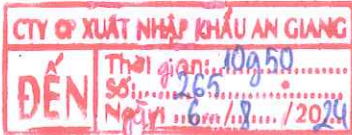 CTY CP XUẤT NHẬP KHẨU AN GIANG
ĐẾN
Thời gian: 10g50
Số: 265
Ngày: 6 / 8 / 2024